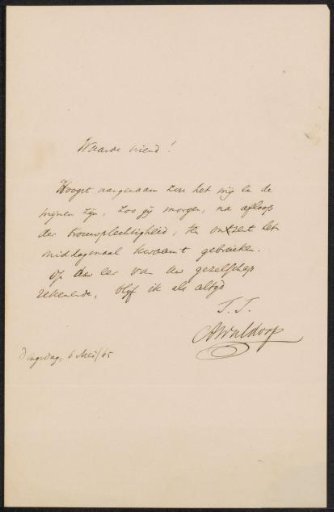 Waarde vriend!
Hoogst aangenaam zou het mij en de
mijnen zijn, zoo gij morgen, na afloop
der trouwplechtigheid, te onzent het
middagmaal kwaamt gebruiken.
Op de eer van uw gezelschap
rekenende, blijf ik als altijd
T.T.
AWaldorp
Dingsdag, 6 Mei/65